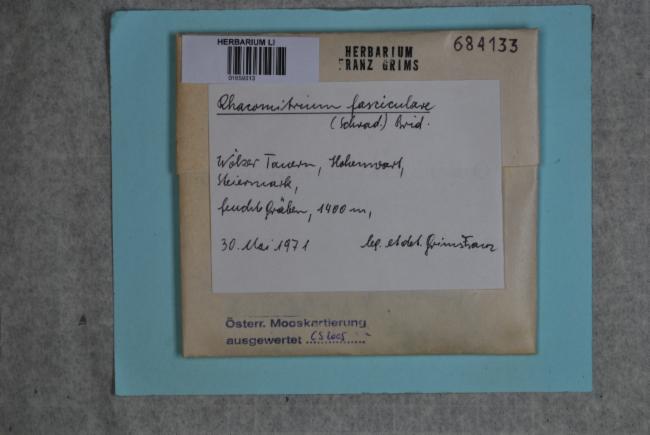 HERBARIUM LI
HERBARIUM
FRANZ GRIMS
684133
Rhacomitrium fasciculare
(Schrad.) Brid.
Wölzer Tauern, Hohenwart,
Steiermark,
feuchte Gräben, 1400 m,
30. Mai 1971 leg. et det. Grims Franz
Österr. Mooskartierung
ausgewertet